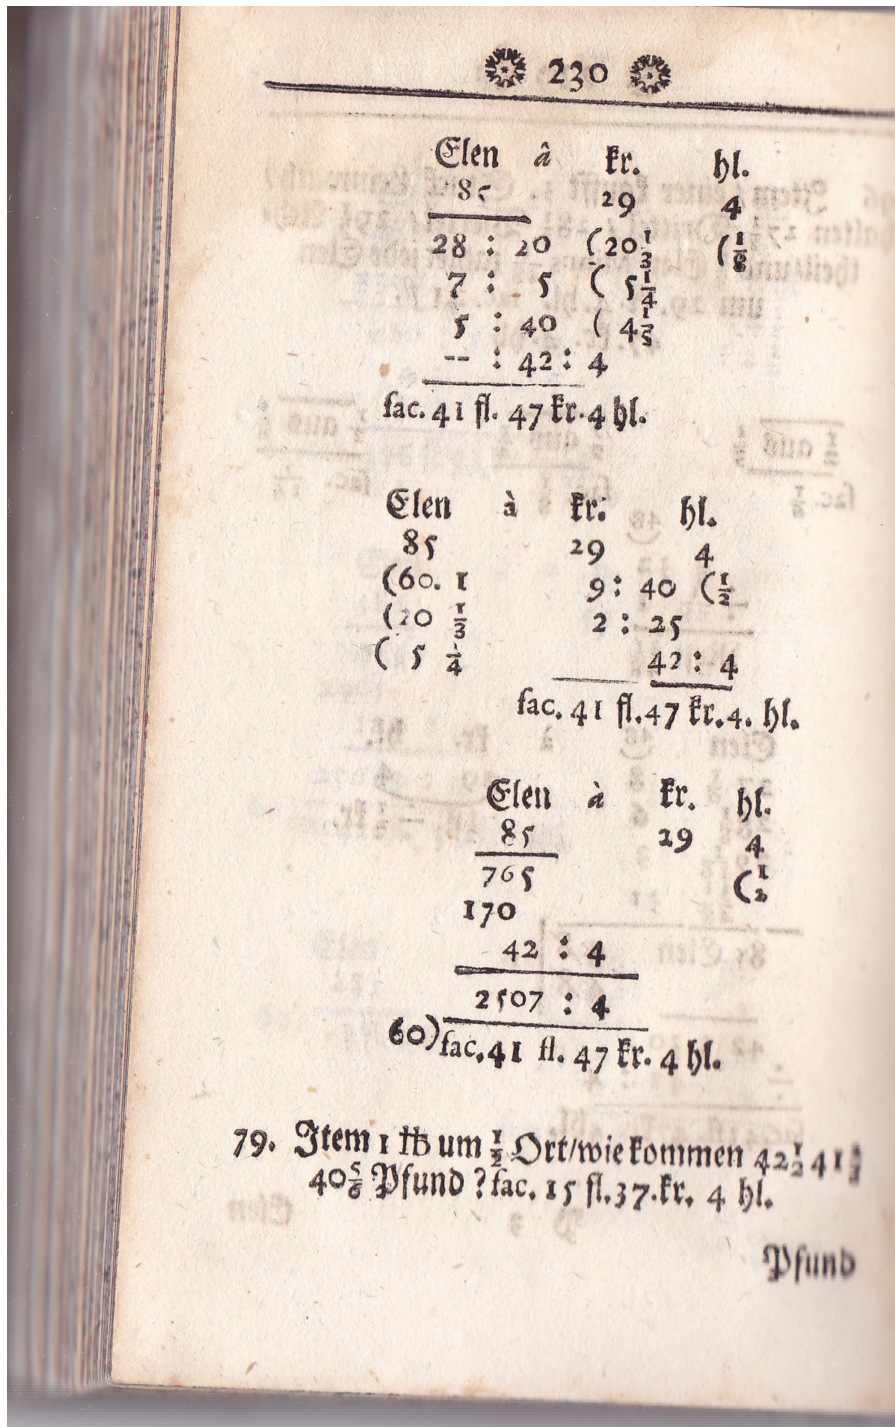 230
Elen â kr. hl.
85 29 4
28 : 20 (20 1/3 (1/8
7 : 5 ( 5 1/4
5 : 40 ( 4 1/5
-- : 42 : 4
fac. 41 fl. 47 kr. 4 hl.
Elen à kr. hl.
85 29 4
(60. 1 9 : 40 (1/2
(20 1/3 2 : 25
( 5 1/4 42 : 4
fac. 41 fl. 47 kr. 4. hl.
Elen à kr. hl.
85 29 4
765 (1/2
170
42 : 4
2507 : 4
60) fac. 41 fl. 47 kr. 4 hl.
79. Item 1 ℔ um 1/2 Ort/wie kommen 42 1/2 41
40 5/6 Pfund ? fac. 15 fl. 37. kr. 4 hl.
Pfund